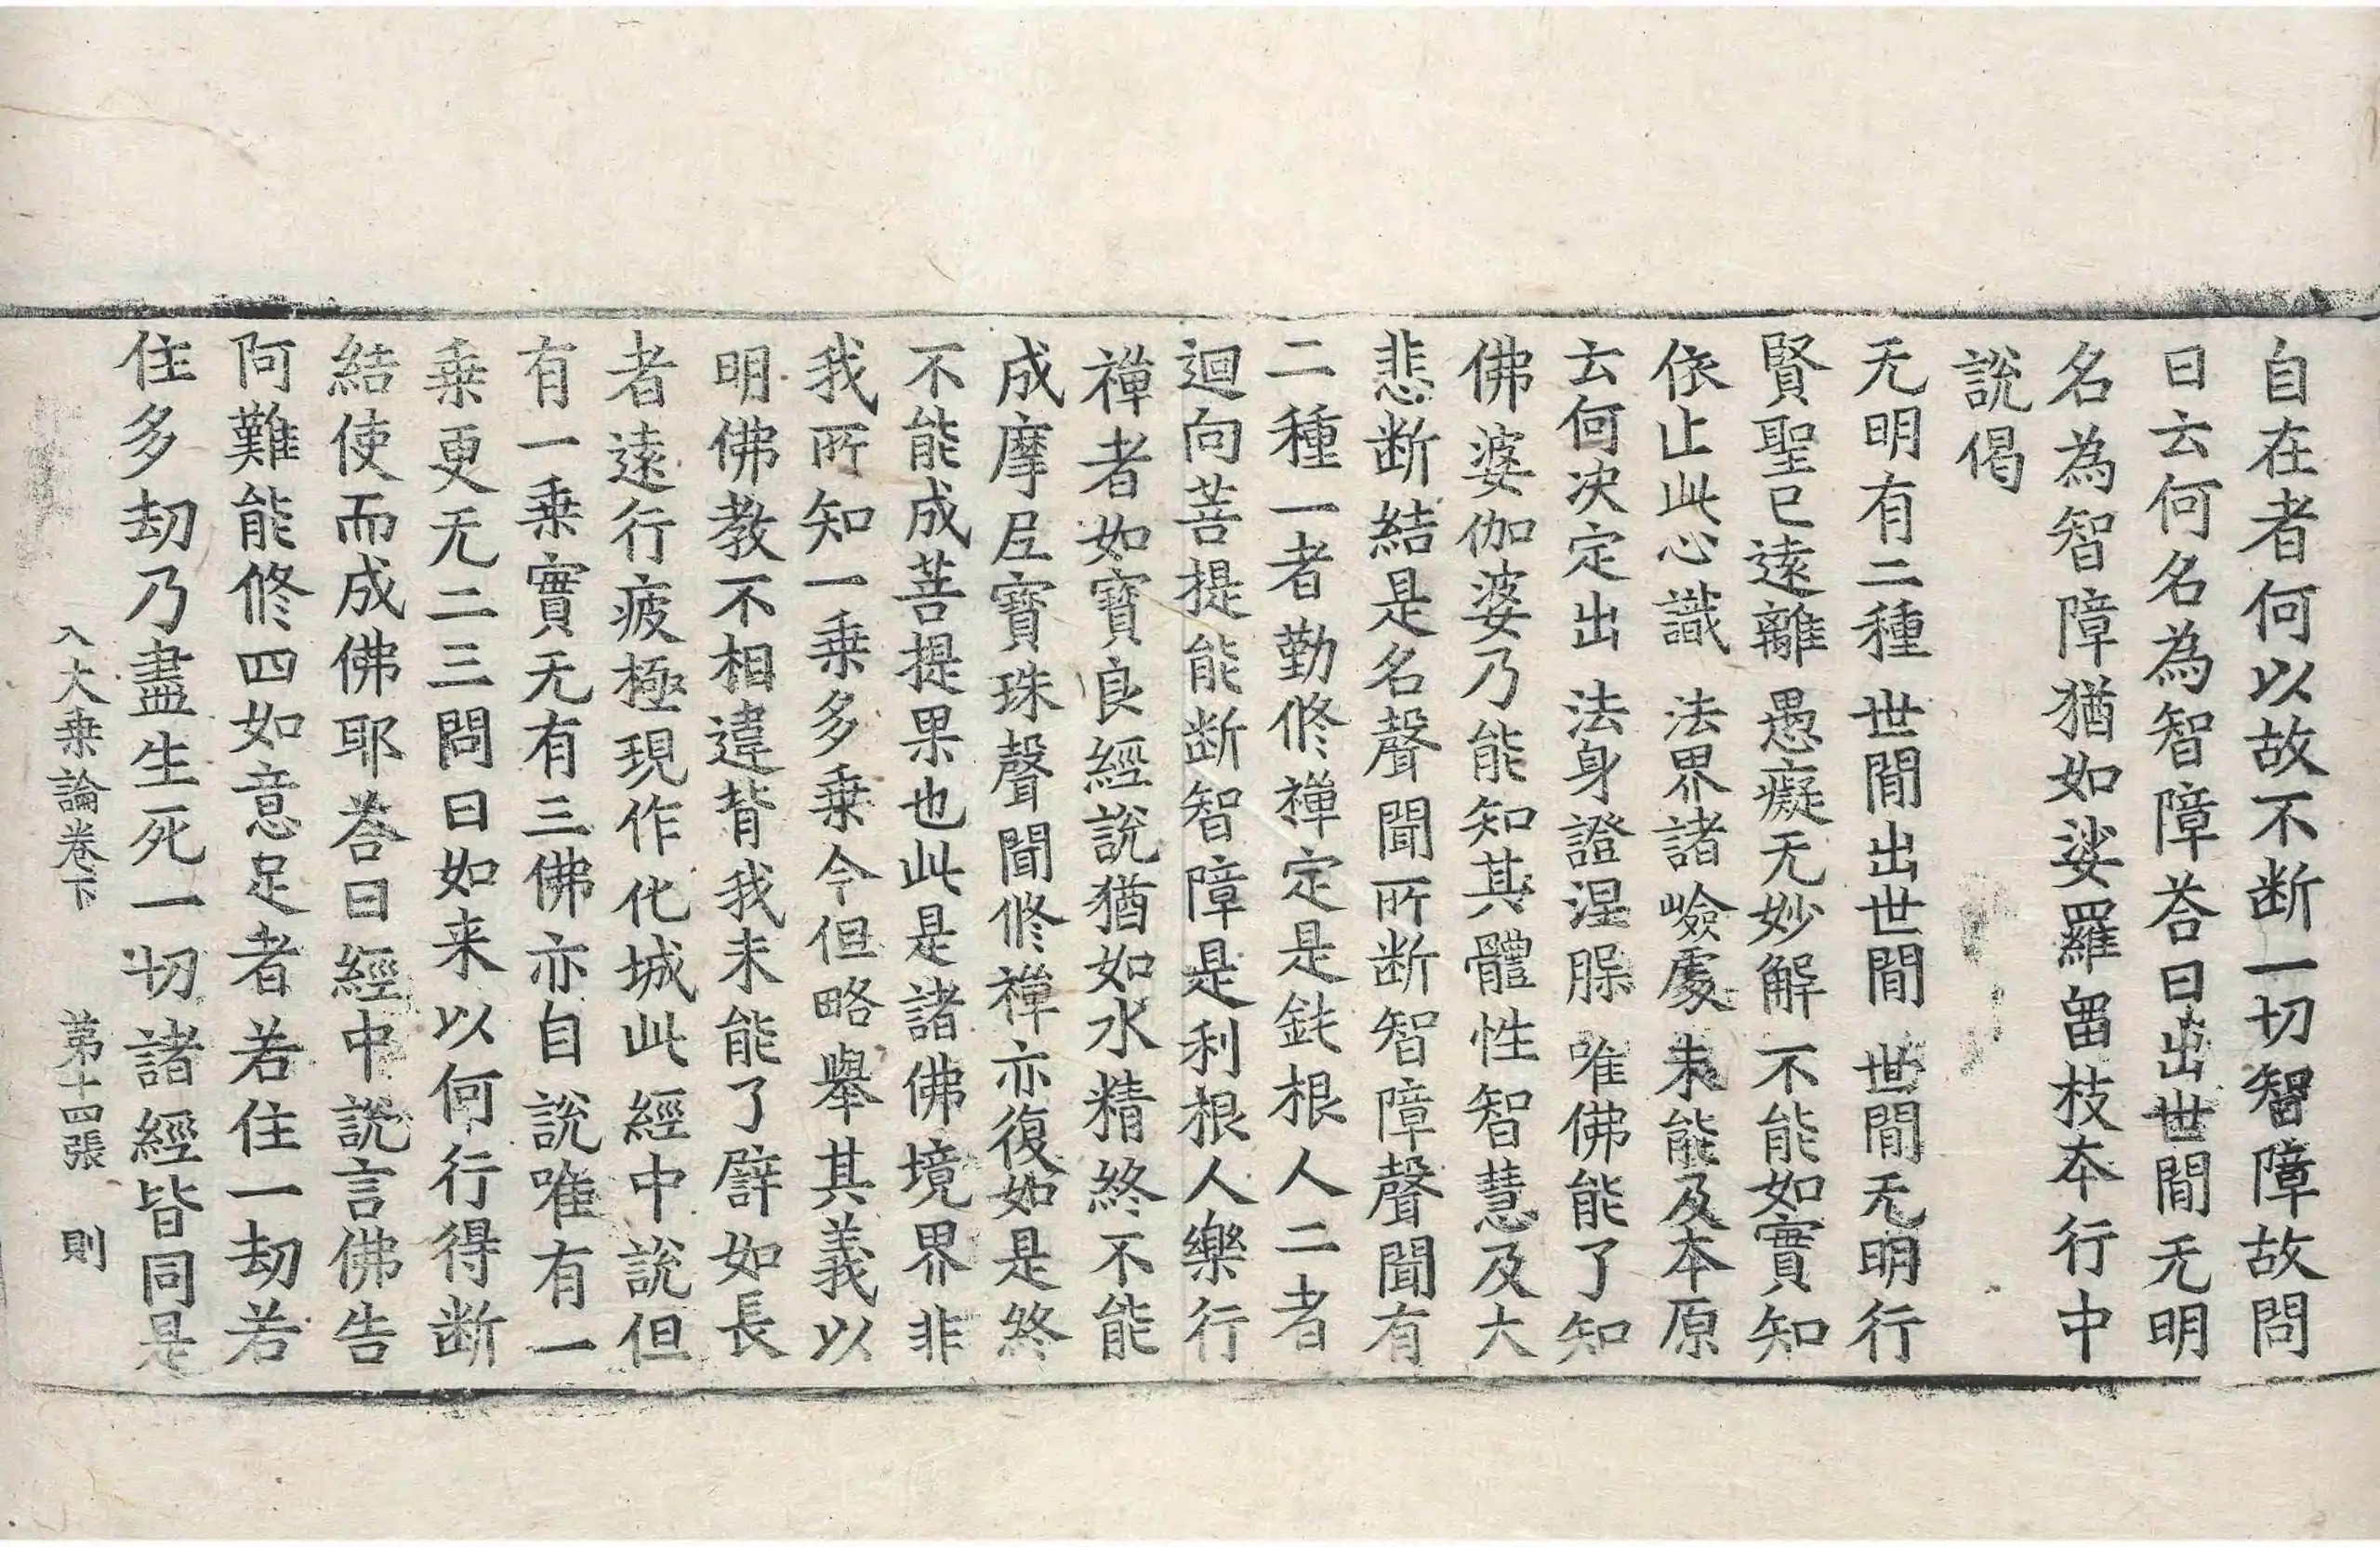 自在者何以故不断一切智障故問
曰云何名為智障荅曰出世閒无明
名為智障猶如娑羅畱枝夲行中
説偈
无明有二種 世閒出世閒 世閒无明行
賢聖已逺離 愚癡无妙解 不能如實知
依止此心識 法界諸嶮處 未能及本原
云何决定出 法身證涅脲 唯佛能了知
佛婆伽婆乃能知其體性智慧及大
悲断結是名聲聞所断智障聲聞有
二種一者勤修禪定是鈍根人二者
迴向菩提能断智障是利根人樂行
禪者如寳良經説猶如水精終不能
成摩𡰱寳珠聲聞修禪亦復如是終
不能成菩提果也此是諸佛境界非
我所知一乗多乗今但略舉其義以
明佛教不相違背我未能了譬如長
者逺行疲極現作化城此經中説但
有一乗實无有三佛亦自説唯有一
乗更无二三問曰如来以何行得断
結使而成佛耶荅曰經中説言佛告
阿難能修四如意足者若住一劫若
住多劫乃盡生死一切諸經皆同是
入大乗論卷下 第十四張 則